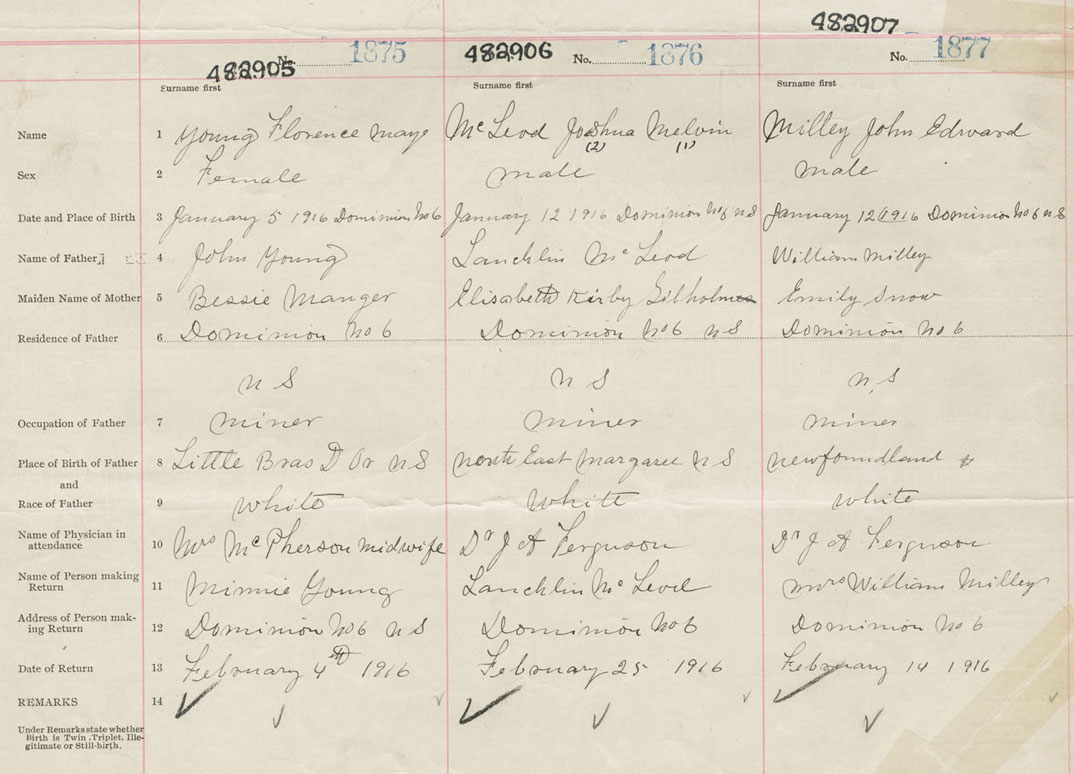 482907
482905 No. 1875 482906 No. 1876 No. 1877
Surname first Surname first Surname first
Name 1 Young Florence Maye McLeod Joshua Melvin Milley John Edward
(2) (1)
Sex 2 Female male male
Date and Place of Birth 3 January 5 1916 Dominion No 6 January 12 1916 Dominion No 6 N S January 12 1916 Dominion No 6 N S
Name of Father 4 John Young Lauchlin McLeod William Milley
Maiden Name of Mother 5 Bessie Manger Elisabeth Kirby Emily Snow
Residence of Father 6 Dominion No 6 Dominion No 6 N S Dominion No 6
N S N S N S
Occupation of Father 7 miner miner miner
Place of Birth of Father 8 Little Bras D Or N S North East Margaree N S Newfoundland
and
Race of Father 9 white white white
Name of Physician in attendance 10 Mrs McPherson midwife Dr J A Ferguson Dr J A Ferguson
Name of Person making Return 11 Minnie Young Lauchlin McLeod Mrs William Milley
Address of Person making Return 12 Dominion No 6 N S Dominion No 6 Dominion No 6
Date of Return 13 February 4th 1916 February 25 1916 February 14 1916
REMARKS 14
Under Remarks state whether
Birth is Twin, Triplet, Ille-
gitimate or Still-birth.